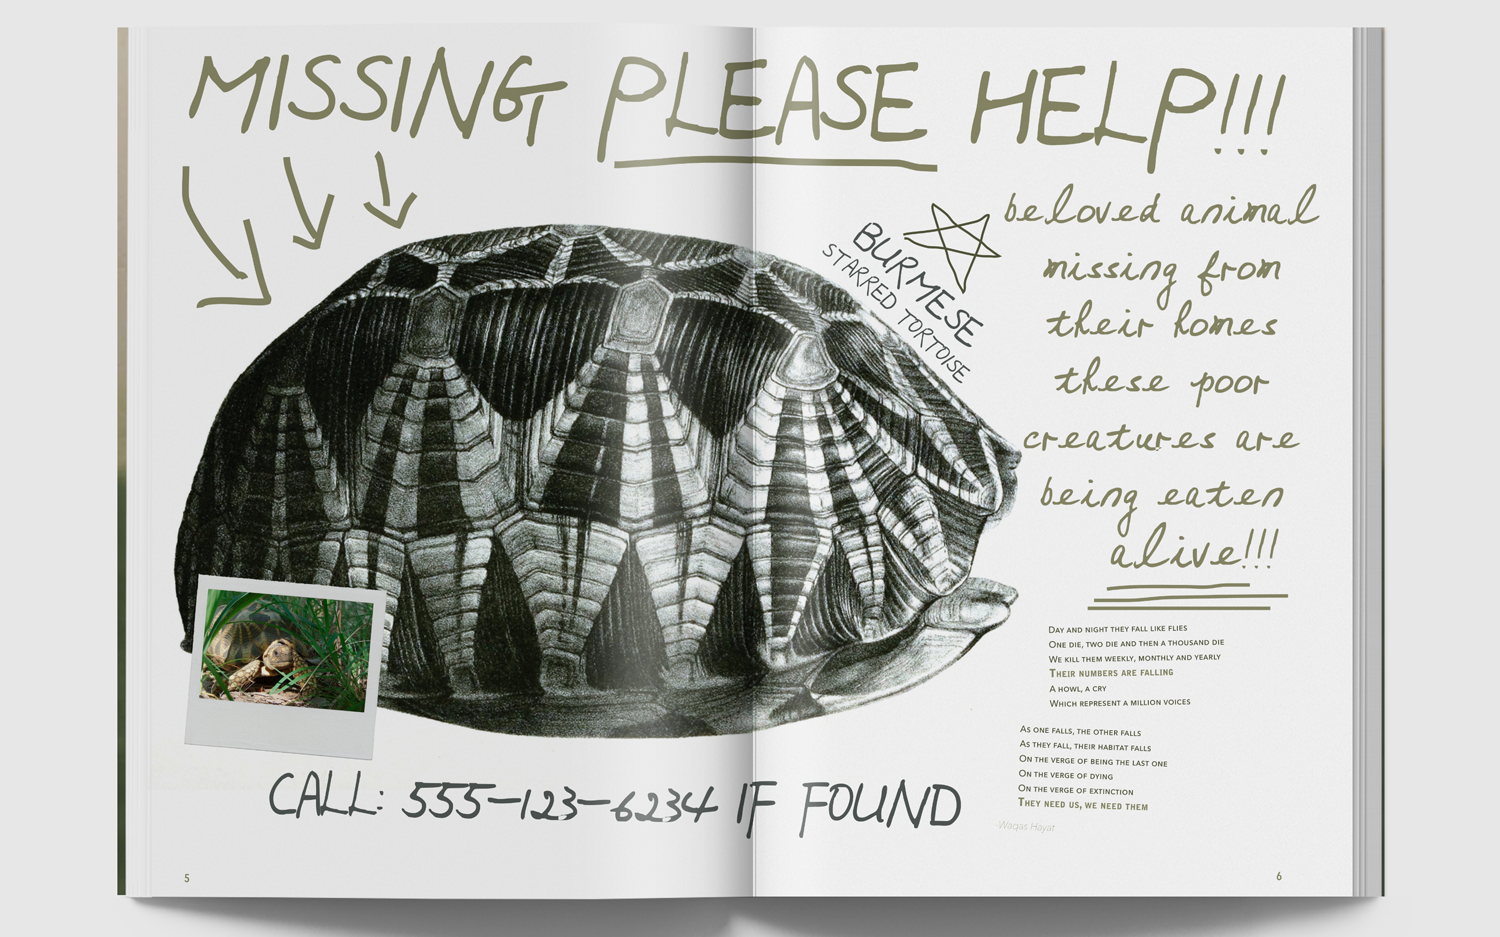 MISSING PLEASE HELP!!!
BURMESE
STARRED TORTOISE
beloved animal
missing from
their homes
these poor
creatures are
being eaten
alive!!!
DAY AND NIGHT THEY FALL LIKE FLIES
ONE DIE, TWO DIE AND THEN A THOUSAND DIE
WE KILL THEM WEEKLY, MONTHLY AND YEARLY
THEIR NUMBERS ARE FALLING
A HOWL, A CRY
WHICH REPRESENT A MILLION VOICES
AS ONE FALLS, THE OTHER FALLS
AS THEY FALL, THEIR HABITAT FALLS
ON THE VERGE OF BEING THE LAST ONE
ON THE VERGE OF DYING
ON THE VERGE OF EXTINCTION
THEY NEED US, WE NEED THEM
-Waqas Hayat
CALL: 555-123-6234 IF FOUND
5
6